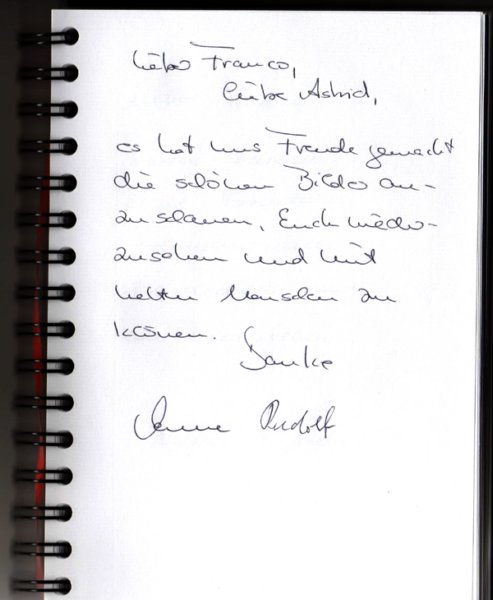 Lieber Franco,
liebe Astrid,
es hat uns Freude gemacht
die schönen Bilder an-
zuschauen, Euch wieder-
zusehen und mit
netten Menschen zu
Danke
Anne Rudolf